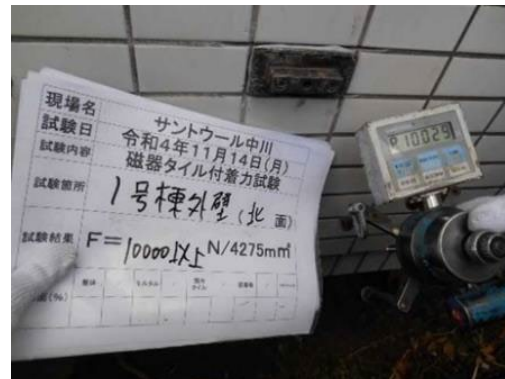 現場名 サントウール中川
試験日 令和4年11月14日(月)
試験内容 磁器タイル付着力試験
試験箇所 1号棟外壁(北 面)
試験結果 F=10000以上 N/4275mm²
(%)
P 10029